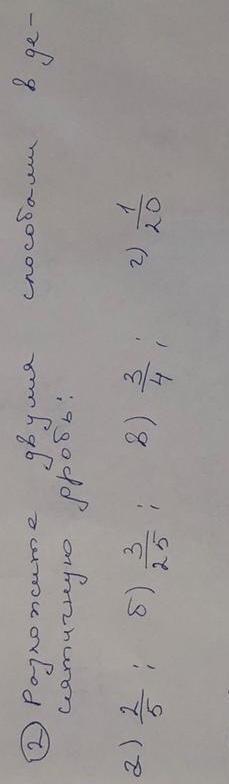 ② Разложите двумя способами в де-
сятичную дробь:
а) 2/5 ; б) 3/25 ; в) 3/4 ; г) 1/20